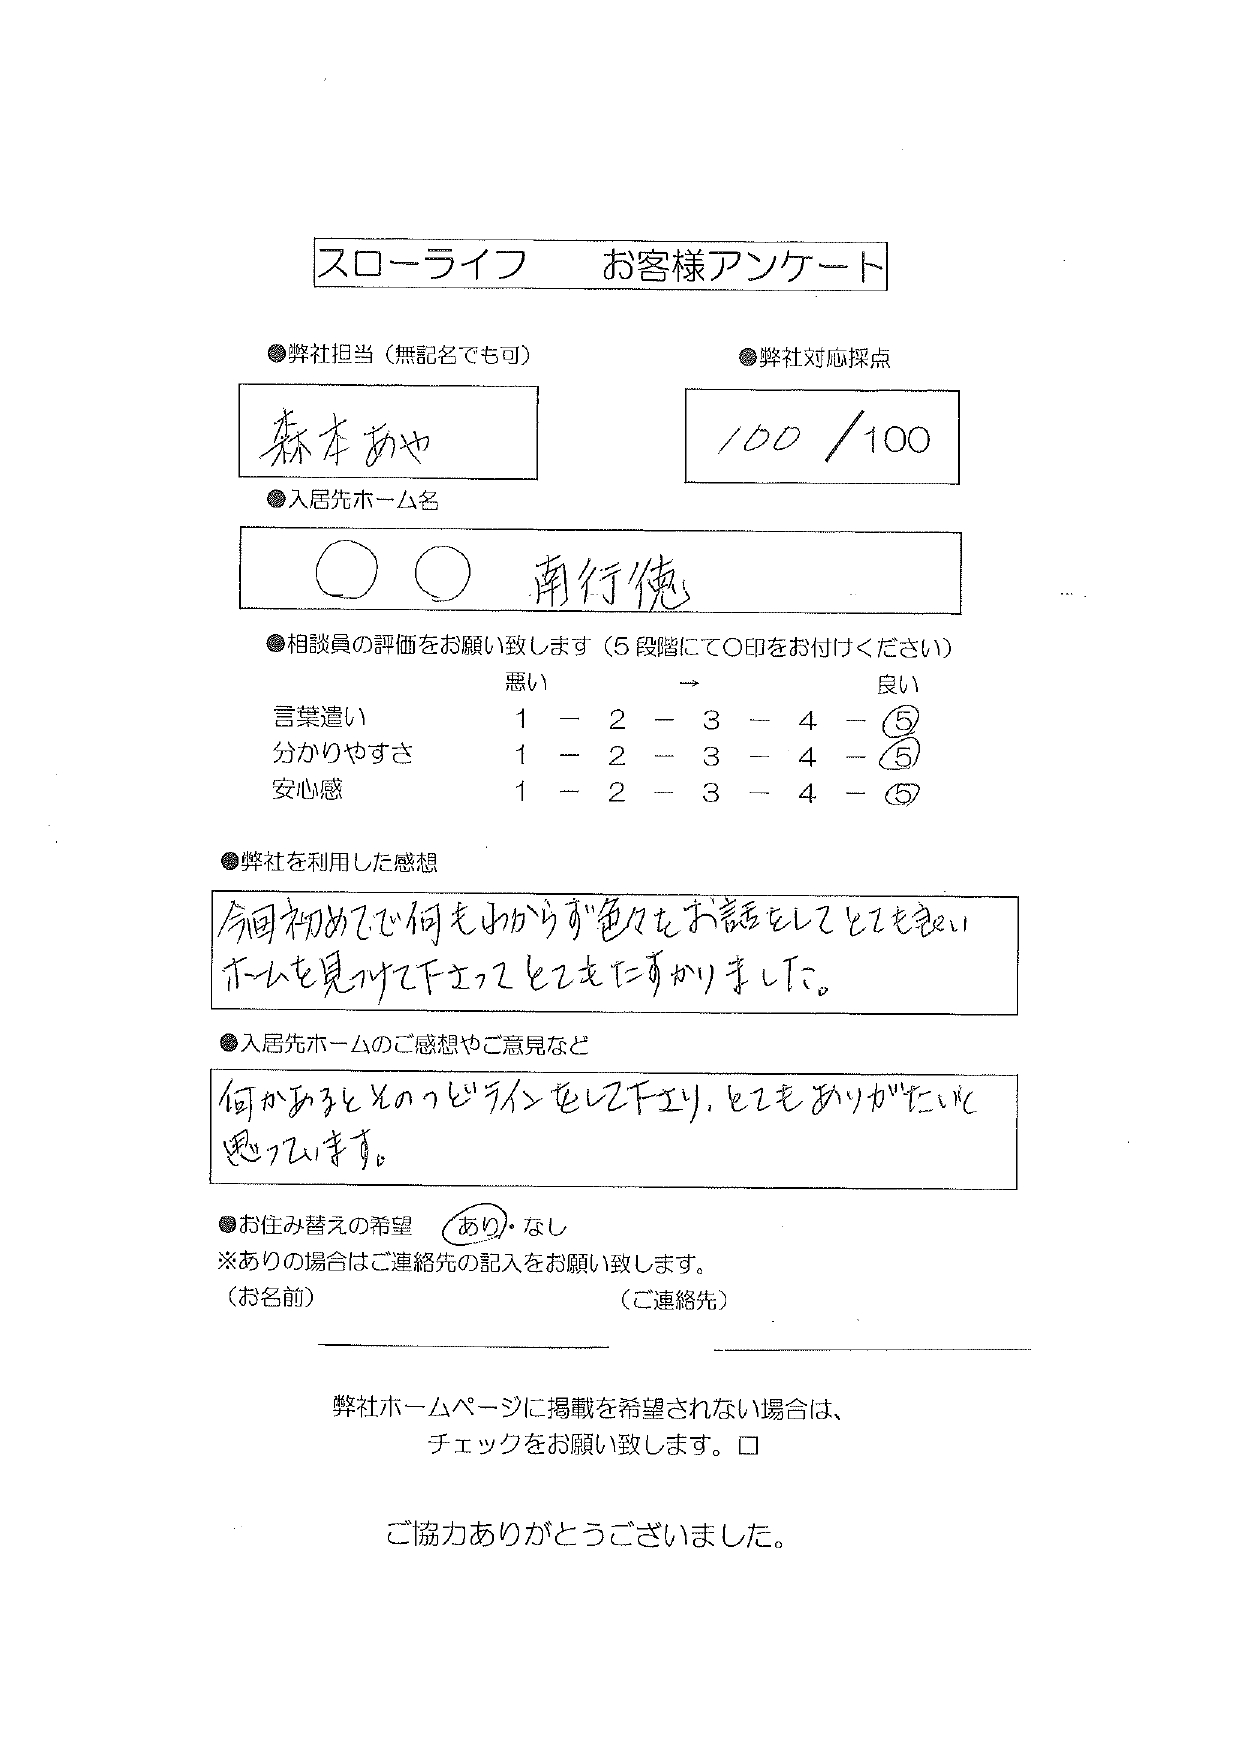 スローライフ　　お客様アンケート
●弊社担当（無記名でも可）　●弊社対応採点
森本あや　100／100
●入居先ホーム名
〇〇 南行徳
●相談員の評価をお願い致します（5段階にて〇印をお付けください）
悪い　→　良い
言葉遣い　1 － 2 － 3 － 4 － 5
分かりやすさ　1 － 2 － 3 － 4 － 5
安心感　1 － 2 － 3 － 4 － 5
●弊社を利用した感想
今回初めてで何もわからず色々なお話をしてとても良い
ホームを見つけて下さってとてもたすかりました。
●入居先ホームのご感想やご意見など
何かあるとそのつどラインをして下さり、とてもありがたいと
思っています。
●お住み替えの希望　あり・なし
※ありの場合はご連絡先の記入をお願い致します。
（お名前）　（ご連絡先）
弊社ホームページに掲載を希望されない場合は、
チェックをお願い致します。□
ご協力ありがとうございました。